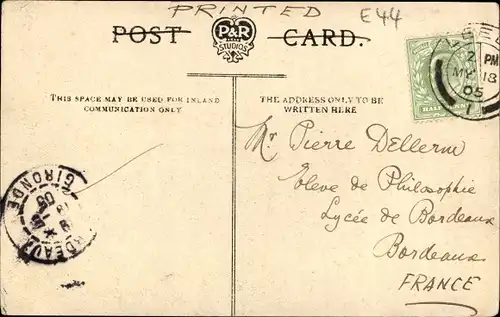 PRINTED
E44
POST CARD.
P&R
STUDIOS
THIS SPACE MAY BE USED FOR INLAND
COMMUNICATION ONLY
THE ADDRESS ONLY TO BE
WRITTEN HERE
2 PM
MY 18
05
Mr Pierre Dellerm
Eleve de Philosophie
Lycée de Bordeaux
Bordeaux
FRANCE
BORDEAUX
GIRONDE